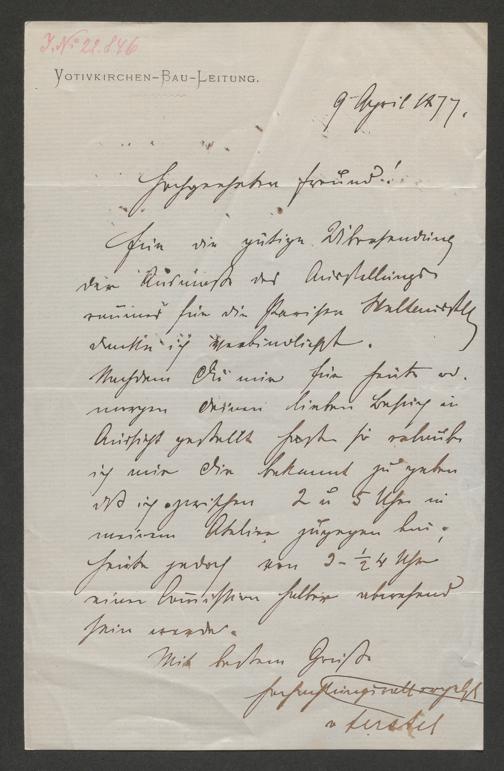 J. No 22.846
Votivkirchen-Bau-Leitung.
9 April 1877.
Hochgeehrter Freund!
Für die gütige Übersendung
der Ausmaße des Ausstellungs
raumes für die Pariser Weltausstellg
danke ich verbindlichst.
Nachdem Du mir für heute od.
morgen Deinen lieben Besuch in
Aussicht gestellt hast so erlaube
ich mir Dir bekannt zu geben
daß ich zwischen 2 u 5 Uhr in
meinem Atelier zugegen bin;
heute jedoch von 3-½4 Uhr
einer Com̄ission halber abwesend
sein werde.
Mit bestem Gruße
hochachtungsvoll ergebst
v Ferstel